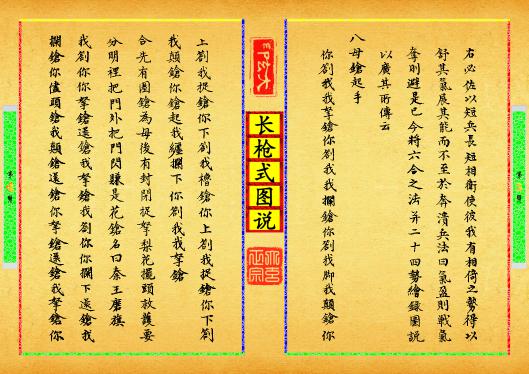 右必佐以短兵長短相衛使彼我有相倚之勢得以
舒其氣展其能而不至於奔潰兵法曰氣盈則戰氣
奪則避是已今將六合之法并二十四勢繪錄圖説
以廣其所傳云
八母鎗起手
你劄我我拏鎗你劄我我攔鎗你劄我脚我顛鎗你
长枪式图说
上劄我捉鎗你下劄我櫓鎗你上劄我捉鎗你下劄
我顛鎗你鎗起我纏攔下你劄我我拏鎗
合先有圈鎗為母後有封閉捉拏梨花擺頭救護要
分明裡把門外把門閃賺是花鎗名曰秦王磨旗
我劄你你拏鎗還鎗我拏鎗我劄你你攔下還鎗我
攔鎗你儘頭鎗我顛鎗還鎗你拏鎗還鎗我拏鎗你